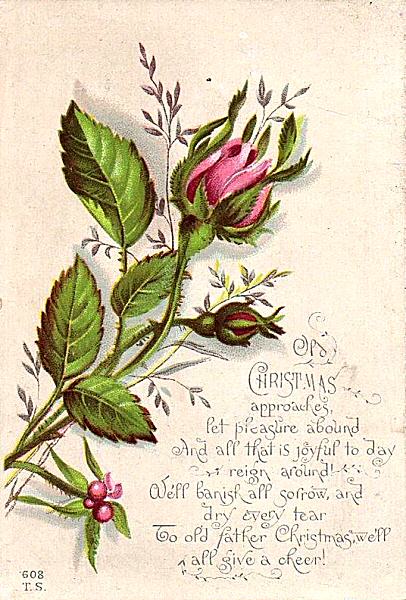 Old
CHRISTMAS
approaches,
let pleasure abound
And all that is joyful to day
reign around!
We'll banish all sorrow, and
dry every tear
To old father Christmas, we'll
all give a cheer!
608
T.S.